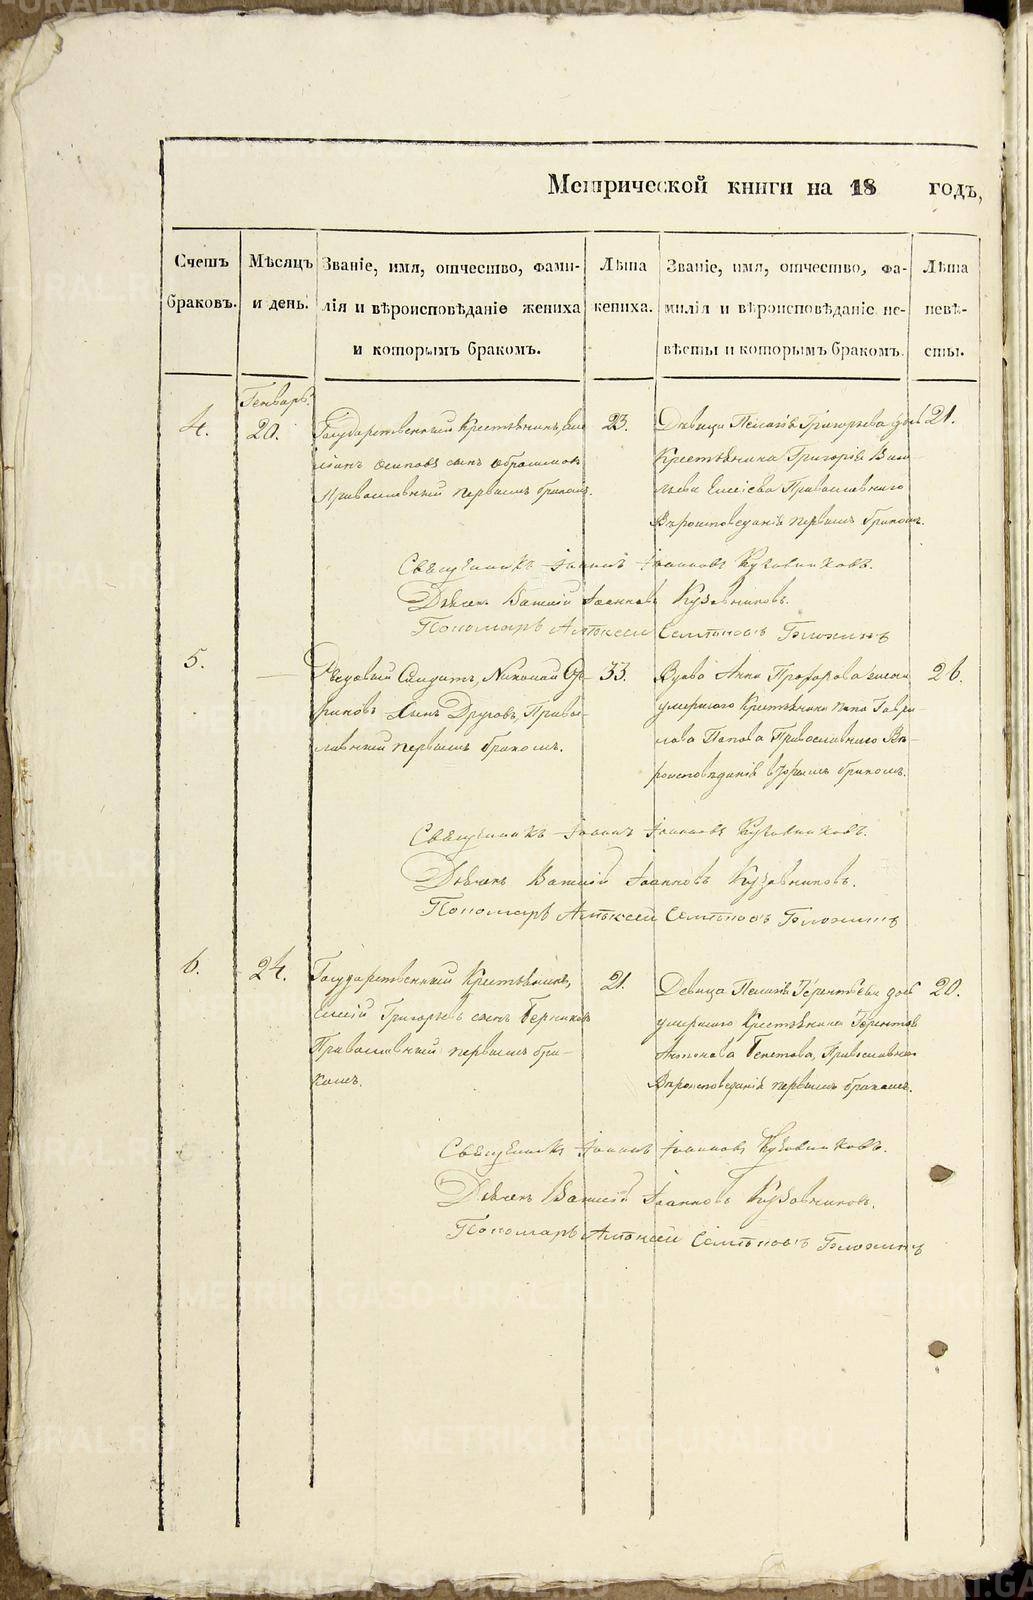 Метрической книги на 18 годъ,
Счетъ браковъ.
Мѣсяцъ и день.
Званіе, имя, отчество, фами-
лія и вѣроисповѣданіе жениха
и которымъ бракомъ.
Лѣта жениха.
Званіе, имя, отчество, фа-
милія и вѣроисповѣданіе не-
вѣсты и которымъ бракомъ.
Лѣта невѣ-
сты.
Генварь.
4. 20. Государственный Крестьянинъ,
Осиповъ сынъ
Православный первымъ бракомъ.
23.
Дѣвица Пелагія Григорьева дочь
Крестьянина Григорія Васи-
льева Православнаго
Вѣроисповеданія первымъ бракомъ.
21.
Священникъ Іоаннъ Іоанновъ Кузовниковъ.
Дьячекъ Василій Іоанновъ Кузовниковъ.
Пономарь Алексѣй Семеновъ
5. — Рядовый Солдатъ, Николай
сынъ Друговъ, Право-
славный первымъ бракомъ.
33.
Вдова Анна Прохорова жена
умершаго Крестьянина Гаври-
лова Попова Православнаго Вѣ-
роисповеданія вторымъ бракомъ.
26.
Священникъ Іоаннъ Іоанновъ Кузовниковъ.
Дьячекъ Василій Іоанновъ Кузовниковъ.
Пономарь Алексѣй Семеновъ
6. 24. Государственный Крестьянинъ,
Григорьевъ сынъ
Православный первымъ бра-
комъ.
21.
Девица Пелагія Терентьева дочь
умершаго Крестьянина Терентія
Антонова Православнаго
Вѣроисповеданія первымъ бракомъ.
20.
Священникъ Іоаннъ Іоанновъ Кузовниковъ.
Дьячекъ Василій Іоанновъ Кузовниковъ.
Пономарь Алексѣй Семеновъ
METRIKI.GASO-URAL.RU